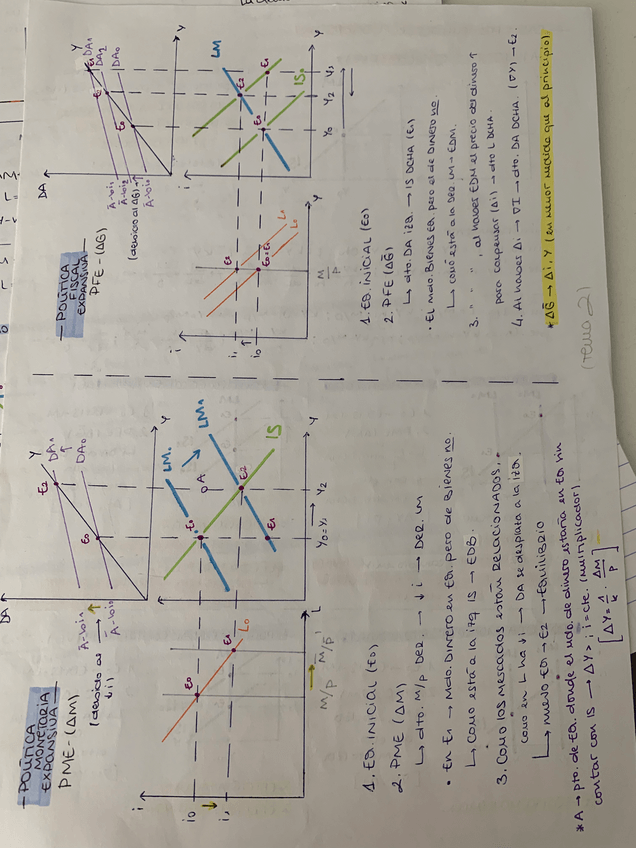 - POLÍTICA
MONETARIA
EXPANSIVA -
PME - (ΔM)
DA
Ā-bi₁
(debido al
↓i)
Ā-bi₀
E₂
Y
DA₁
DA₀
E₀
Y
i
i₀
i₁
E₀
E₁
L₀
L
M/P
M̄/P¹
LM₀
LM₁
IS
A
E₀
E₂
E₁
Y₀=Y₁
Y₂
Y
1. EQ. INICIAL (E₀)
2. PME (ΔM)
↳ dto. M/P DER. → ↓i → DER. LM
• En E₁ → Mdo. DINERO en EQ. pero de BIENES no.
↳ como está a la izq IS → EDB.
3. COMO LOS MERCADOS ESTÁN RELACIONADOS..
como en L ha ↓i → DA se desplaza a la izq.
↳ nuevo EQ₁ → E₂ → EQUILIBRIO
* A → pto. de EQ. donde el mdo. de dinero estaría en EQ sin
contar con IS → ΔY > ; i = cte. (multiplicador).
[ΔY = 1/k · ΔM/P]
- POLÍTICA
FISCAL
EXPANSIVA -
PFE - (ΔG)
DA
Ā-bi₁
Ā-bi₂
(debido al ΔG)
Ā-bi₀
Y
E₁
DA₁
DA₂
DA₀
E₀
Y
i
i₁
i₀
E₂
E₀=E₁
L₁
L₀
M/P
LM
IS₀
E₂
E₁
E₀
Y₀
Y₂
Y₁
Y
1. EQ. INICIAL (E₀)
2. PFE (ΔG)
↳ dto. DA izq. → IS DCHA (E₁)
• El mdo. BIENES EQ. pero el de DINERO no.
↳ como está a la DER. LM → EDM.
3. " " " , al haber EDM el precio del dinero ↑
para compensar (Δi) → dto L DCHA.
4. Al haber Δi → ∇I → dto. DA DCHA. (∇Y) → E₂.
* ΔG → Δi, Y (en menor medida que al principio)
(tema 2)